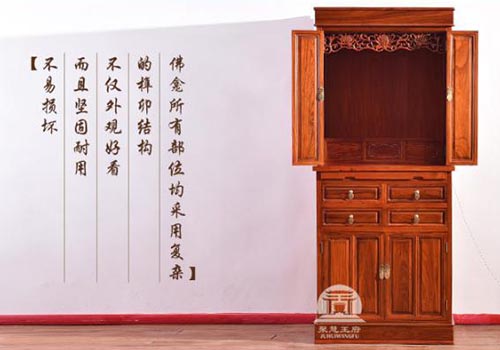 佛龛所有部位均采用复杂】
的榫卯结构
不仅外观好看
而且坚固耐用
【不易损坏
聚慧王府
JUHUIWANGFU